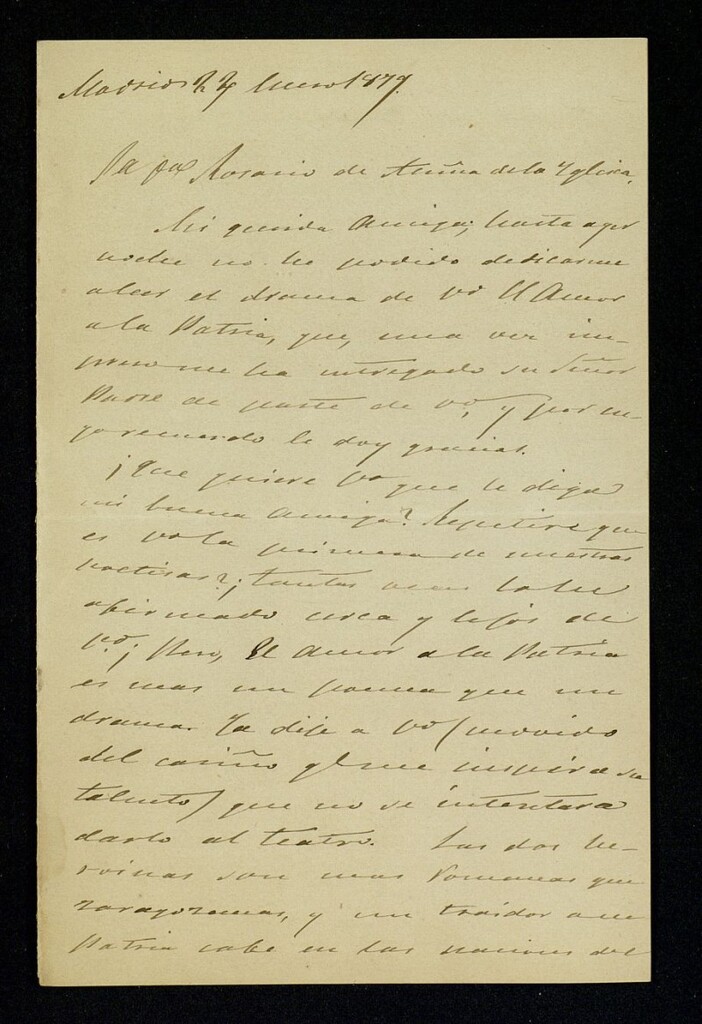 Madrid 24 Enero 1879.
Sa Da Rosario de Acuña de la Yglesia.
Mi querida amiga; hasta ayer
noche no he podido dedicarme
a leer el drama de Vd El Amor
a la Patria, que, una vez im-
preso me ha entregado su Señor
Padre de parte de Vd, y por cu-
yo recuerdo le doy gracias.
¡Que quiere Vd que le diga
mi buena amiga? Repetire que
es Vd la primera de nuestras
poetisas?; tantas veces lo he
afirmado cerca y lejos de
Vd; Pero, El Amor a la Patria
es mas un poema que un
drama. Ya dije a Vd (movido
del cariño que me inspira su
talento) que no se intentara
darlo al teatro. Las dos he-
roinas son mas Romanas que
zaragozanas, y un traidor a su
Patria cabe en las naciones del